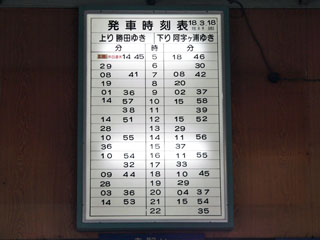 発車時刻表 18 3 18
上り 勝田ゆき 下り 阿字ヶ浦ゆき
分 時 分
14 45 5 18 46
29 6 30
08 41 7 08 42
8
01 36 9 02 37
14 57 10 15 58
38 11 39
14 51 12 15 52
28 13 29
10 55 14 11 56
36 15 37
10 54 16 11 55
32 17 33
09 44 18 10 45
28 19 29
03 36 20 04 37
14 53 21 15 54
22 35